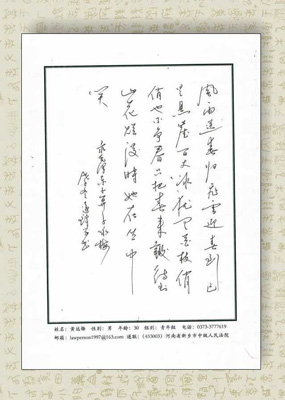 風雨送春归飛雪迎春到已
是悬崖百丈冰犹有花枝俏
俏也不争春只把春来報待到
山花烂漫时她在丛中
笑
录毛泽东卜算子咏梅
姓名：黄远 性别：男 年龄：30 组别：青年组 电话：0373-3777619
邮箱：lawperson1997@163.com 通联：(453003) 河南省新乡市中级人民法院